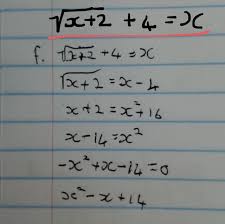 √x+2 + 4 = x
f. √x+2 + 4 = x
√x+2 = x - 4
x + 2 = x² + 16
x - 14 = x²
-x² + x - 14 = 0
x² - x + 14